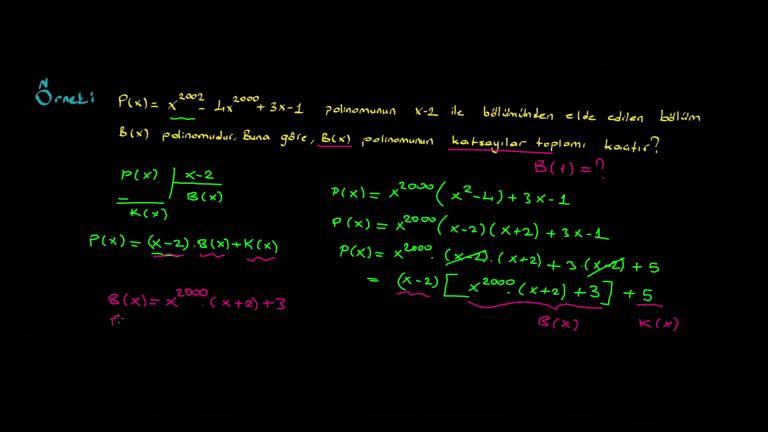 Örnek:
P(x) = x^2002 - 4x^2000 + 3x - 1 polinomunun x-2 ile bölümünden elde edilen bölüm
B(x) polinomudur. Buna göre, B(x) polinomunun katsayılar toplamı kaçtır?
B(1) = ?
P(x) | x-2
B(x)
K(x)
P(x) = (x-2).B(x)+K(x)
B(x) = x^2000.(x+2)+3
P(x) = x^2000(x^2-4)+3x-1
P(x) = x^2000(x-2)(x+2)+3x-1
P(x) = x^2000.(x-2).(x+2)+3.(x-2)+5
= (x-2)[x^2000.(x+2)+3]+5
B(x) K(x)